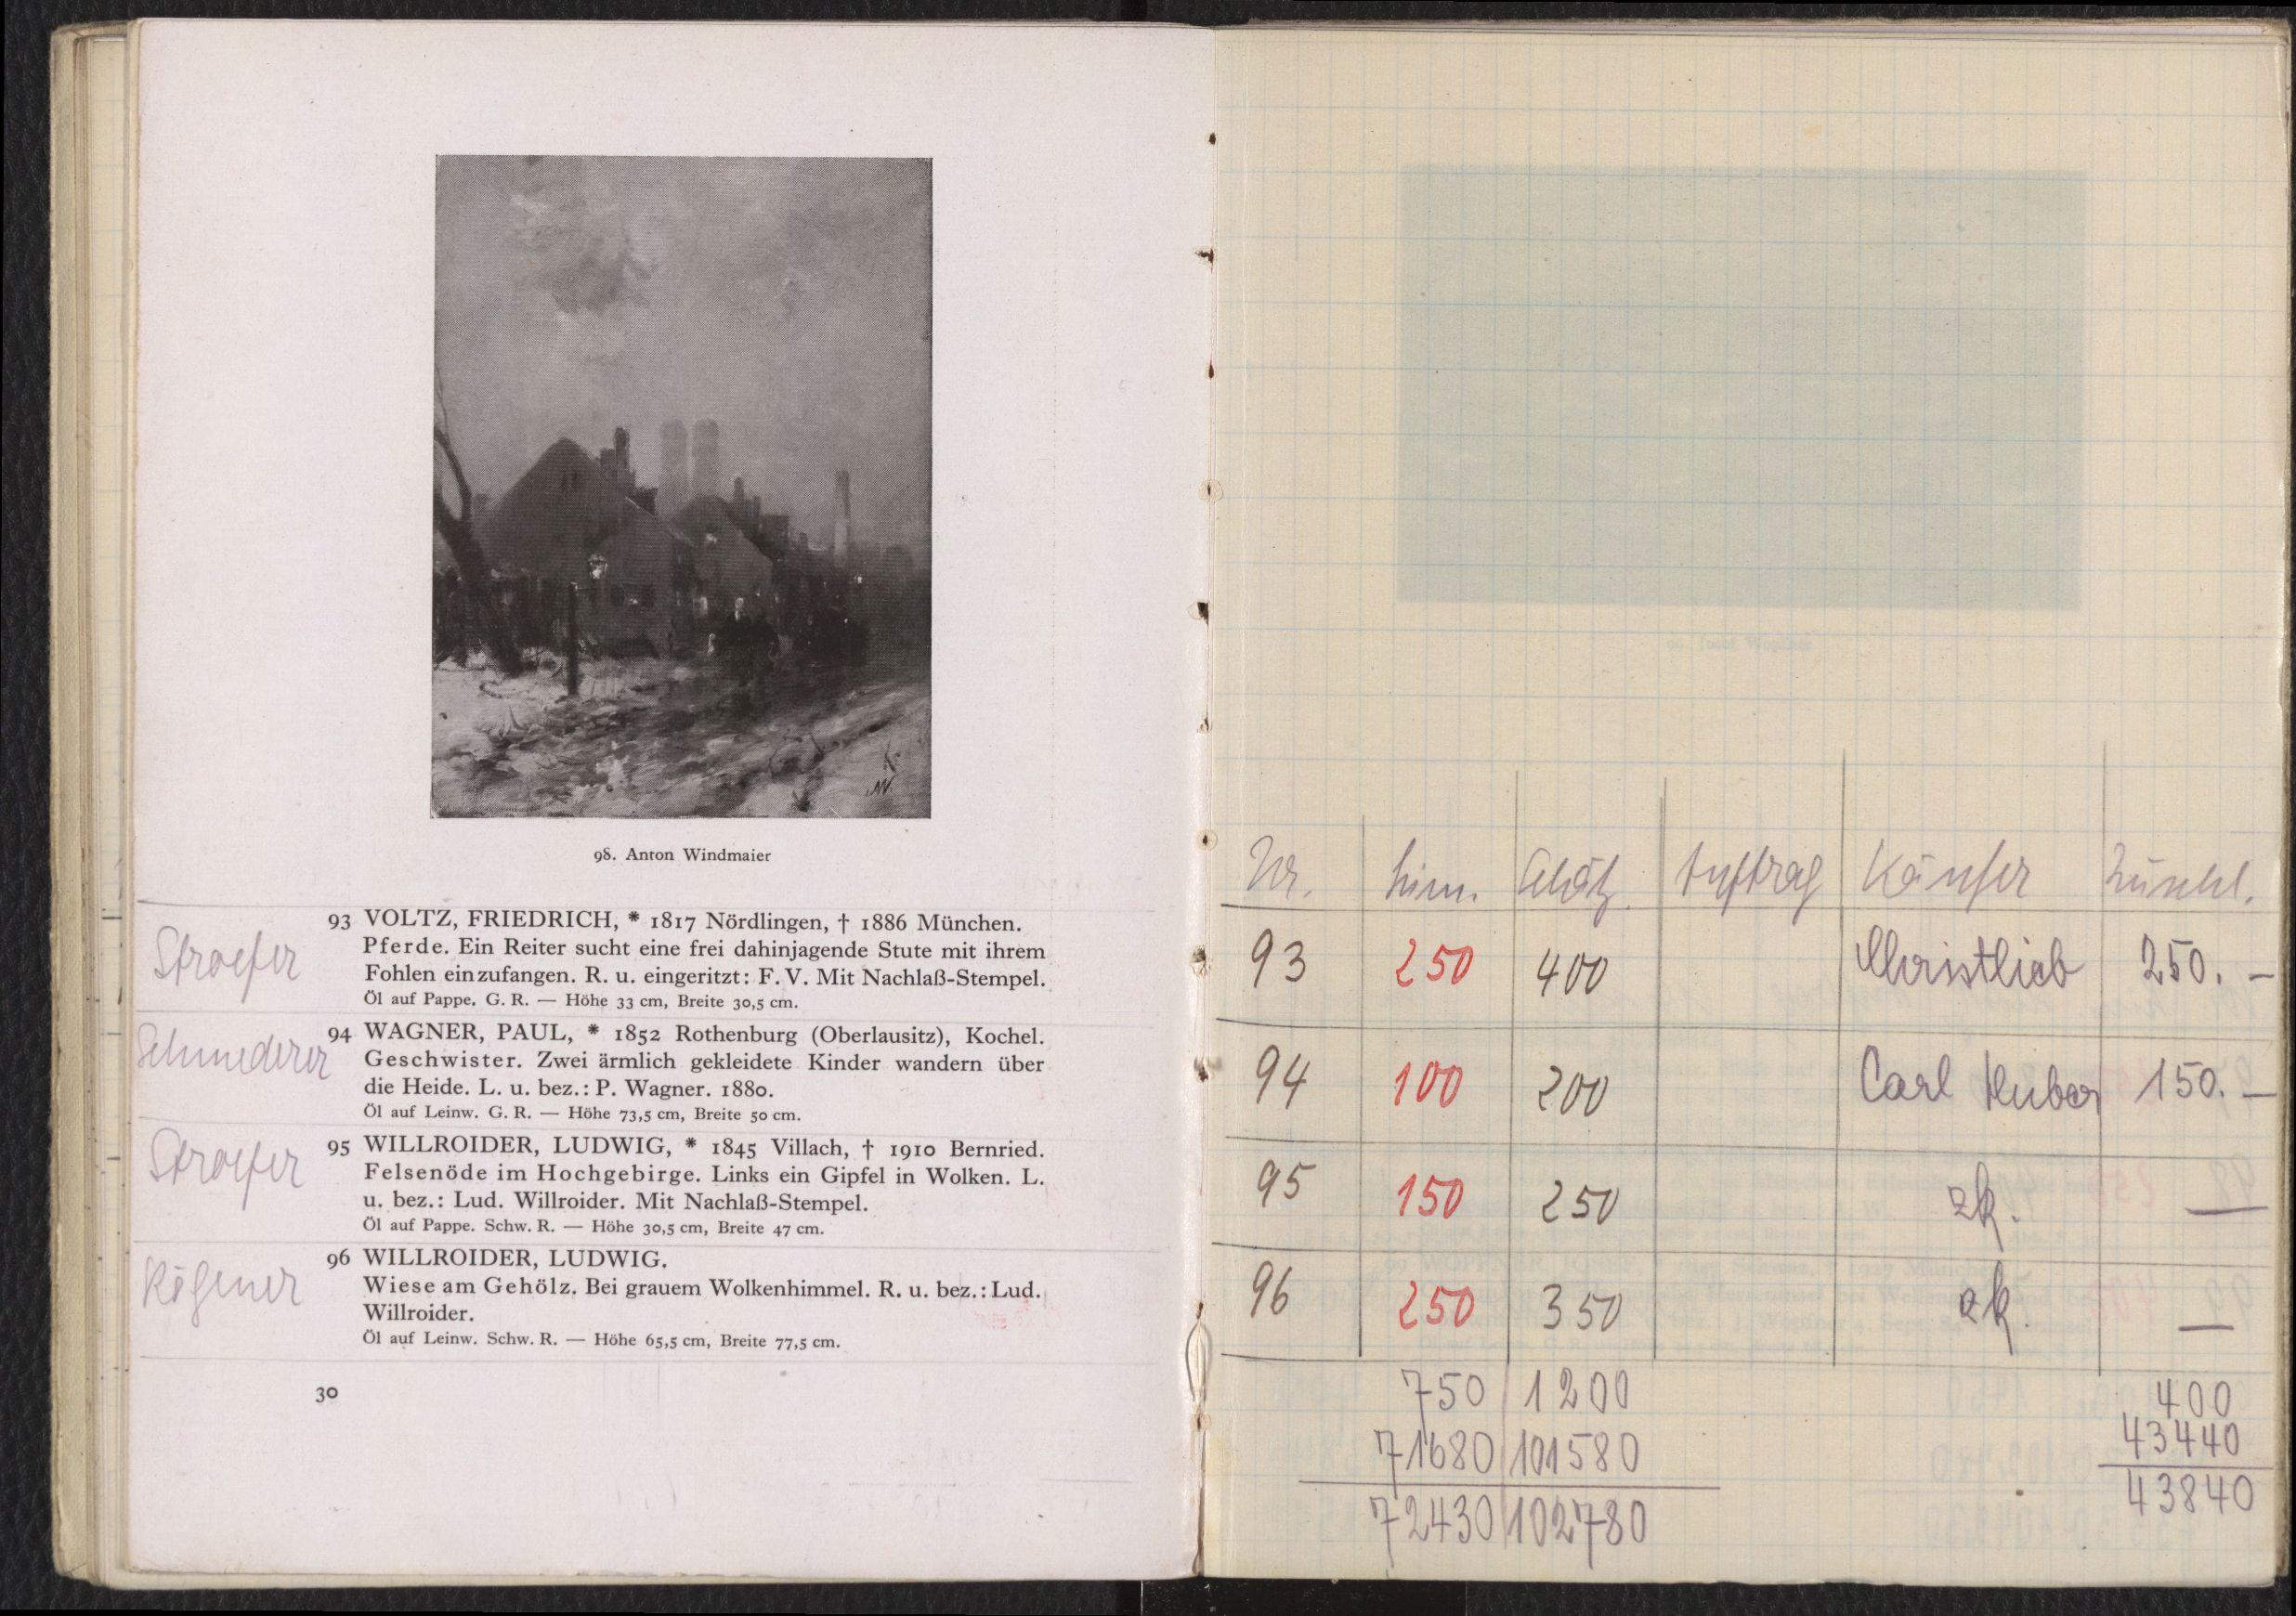 98. Anton Windmaier
Stroefer
93 VOLTZ, FRIEDRICH, * 1817 Nördlingen, † 1886 München.
Pferde. Ein Reiter sucht eine frei dahinjagende Stute mit ihrem
Fohlen einzufangen. R. u. eingeritzt: F. V. Mit Nachlaß-Stempel.
Öl auf Pappe. G. R. — Höhe 33 cm, Breite 30,5 cm.
Schmederer
94 WAGNER, PAUL, * 1852 Rothenburg (Oberlausitz), Kochel.
Geschwister. Zwei ärmlich gekleidete Kinder wandern über
die Heide. L. u. bez.: P. Wagner. 1880.
Öl auf Leinw. G. R. — Höhe 73,5 cm, Breite 50 cm.
Stroefer
95 WILLROIDER, LUDWIG, * 1845 Villach, † 1910 Bernried.
Felsenöde im Hochgebirge. Links ein Gipfel in Wolken. L.
u. bez.: Lud. Willroider. Mit Nachlaß-Stempel.
Öl auf Pappe. Schw. R. — Höhe 30,5 cm, Breite 47 cm.
96 WILLROIDER, LUDWIG.
Wiese am Gehölz. Bei grauem Wolkenhimmel. R. u. bez.: Lud.
Willroider.
Öl auf Leinw. Schw. R. — Höhe 65,5 cm, Breite 77,5 cm.
30
Nr. Lim. Schätz. Auftrag Käufer Zuschl.
93 250 400 Christlieb 250. –
94 100 200 Carl Huber 150. –
95 150 250 zk. —
96 250 350 zk. —
750 1200 400
71680 101580 43440
72430 102780 43840